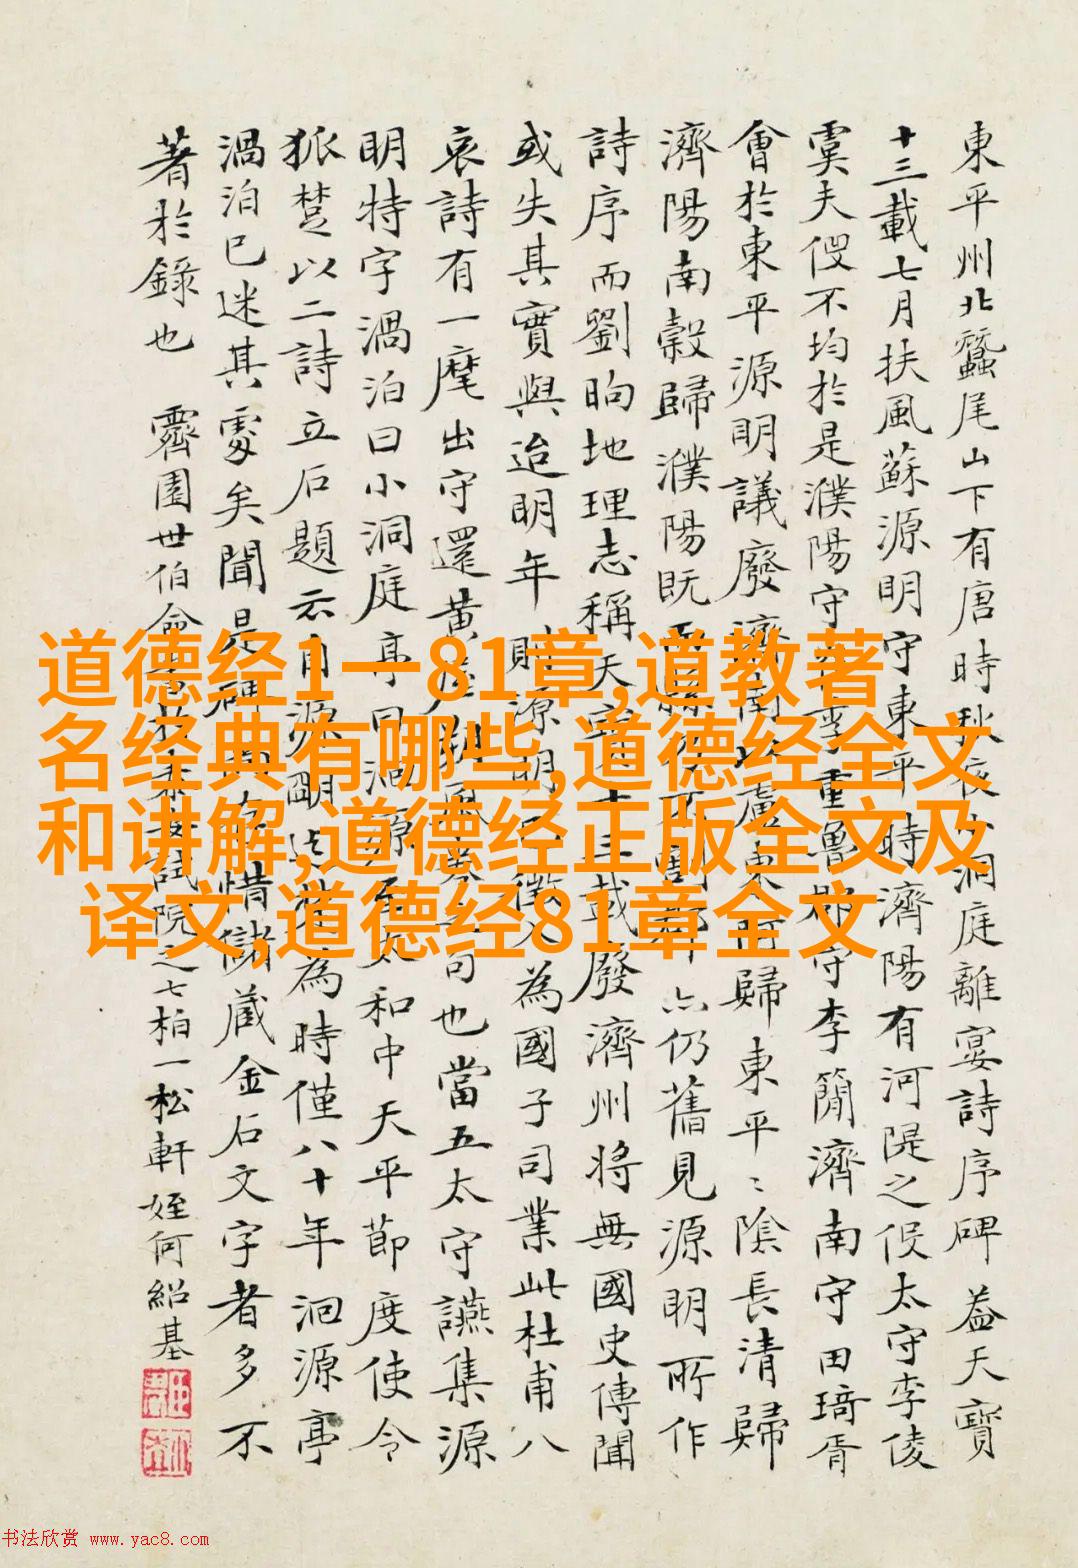 東平州北蠶尾山下有唐時秋夜小洞庭離宴詩序碑 葢天寶
十三載七月扶風蘇源明守東平時濟陽有河隄之役太守李倰
虞夫伇不均於是濮陽守季重魯郡守李簡濟南守田琦胥
會於東平源明議廢濟東阿歸東平〻陰長清歸
濟陽南穀歸濮陽既仍舊見源明所作
詩序而劉昫地理志稱天寶十三載廢濟州將無國史傳聞
或失其實與迨明年則源明徵入為國子司業此杜甫八
哀詩有一麾出守還黃句也當五太守讌集源
明特字渦泊曰小洞庭亭曰洄源至太和中天平節度使令
狐楚以二詩立石題云自源明此為時僅八十年洄源亭
渦泊已迷其處矣聞是碑惜儲藏金石文字者多不
著於錄也 霽園世伯命書試院之七柏一松軒 姪何紹基
道德经1一81章,道教著
名经典有哪些,道德经全文
和讲解,道德经正版全文及
译文,道德经81章全文
书法欣赏 www.yac8.com